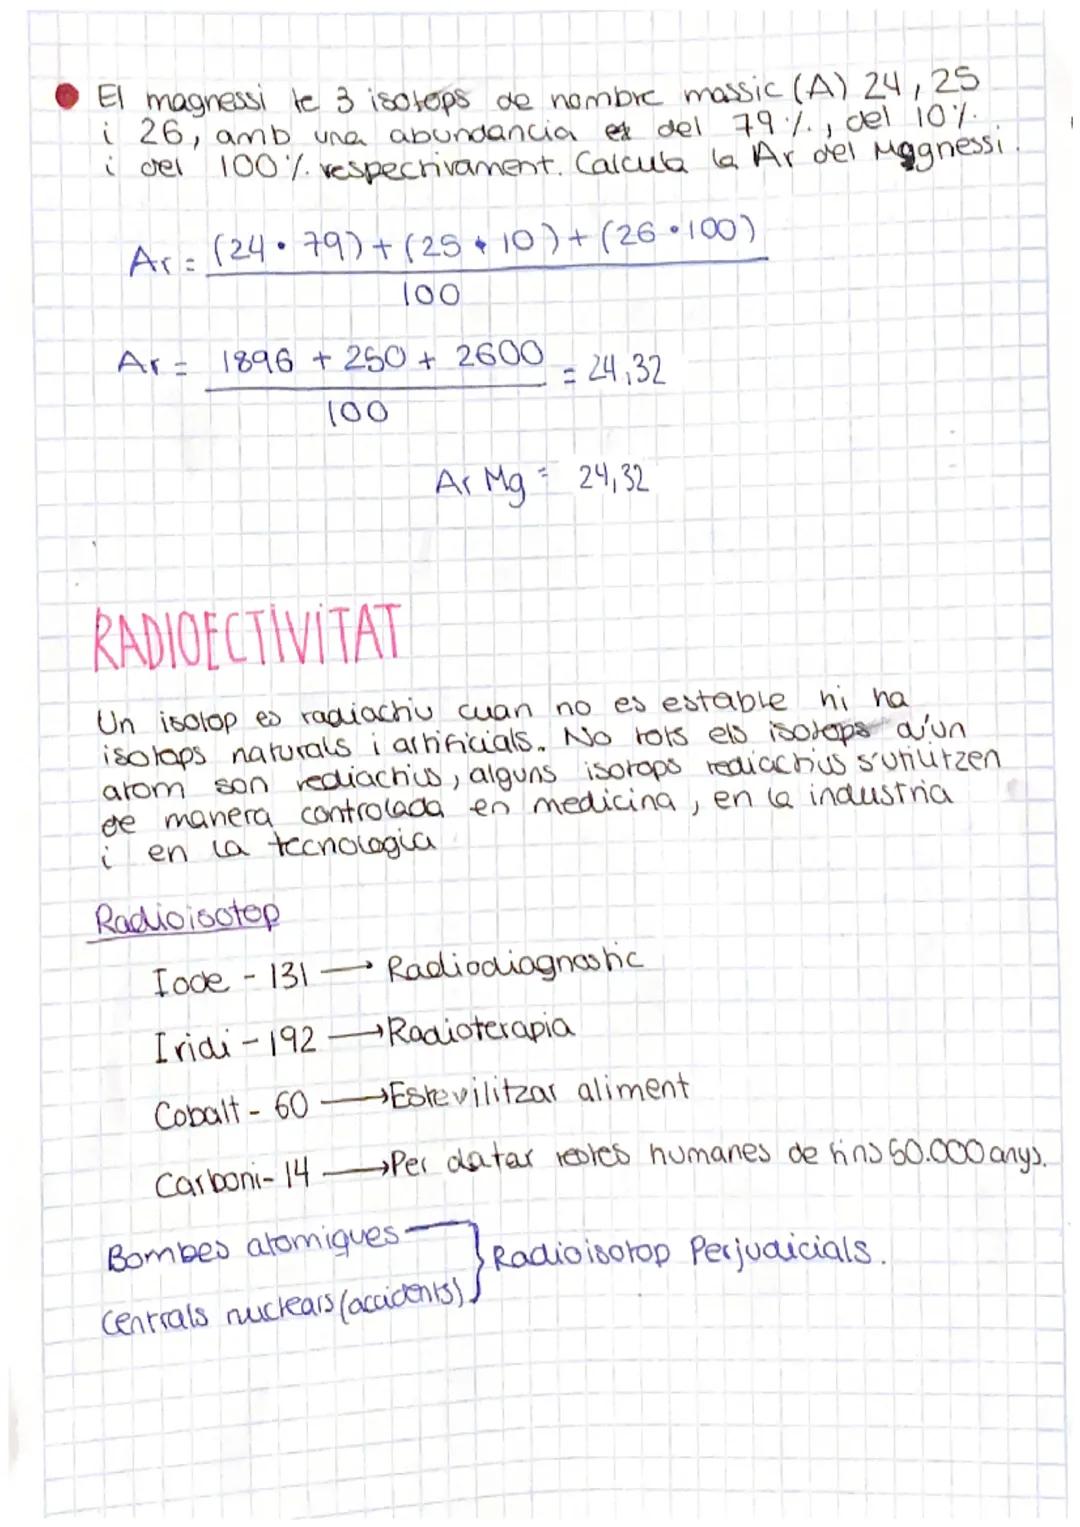 El magnessi te 3 isotops de nombre massic (A) 24, 25
i 26, amb una abundancia del 79%., del 10%.
i del 100%. respectivament. Calcula la Ar del Magnessi.
Ar = (24 · 79) + (25 · 10) + (26 · 100)
100
Ar = 1896 + 250 + 2600 = 24,32
100
Ar Mg = 24,32
RADIOECTIVITAT
Un isotop es radiactiu cuan no es estable hi ha
isotops naturals i artificials. No tots els isotops d'un
atom son rediactius, alguns isotops rediactius s'utilitzen
de manera controlada en medicina, en la industria
i en la tecnologia
Radioisotop
Iode - 131 → Radiodiagnostic
Iridi - 192 → Radioterapia
Cobalt - 60 → Esterilitzar aliment
Carboni - 14 → Per datar restes humanes de fins 50.000 anys.
Bombes atomiques
Radioisotop Perjudicials.
Centrals nuclears (accidents)